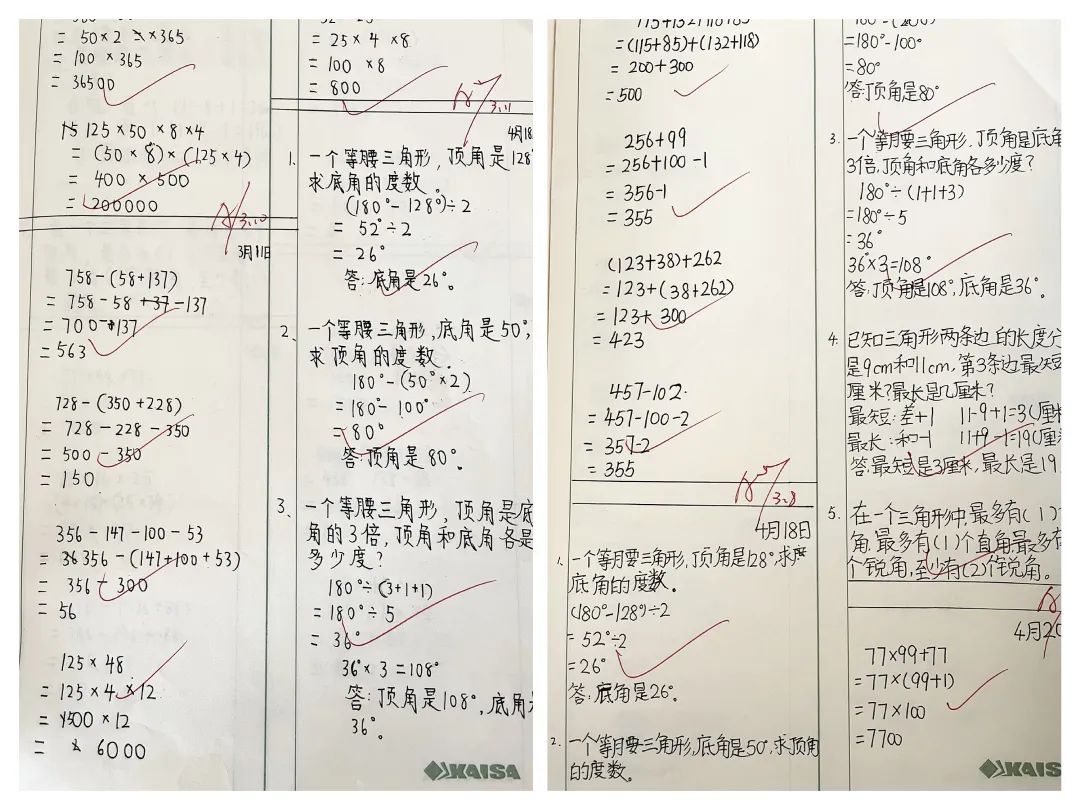 = 50×2 × 365
= 100 × 365
= 36500
125 × 50 × 8 × 4
= (50 × 8) × (125 × 4)
= 400 × 500
= 200000
3.10
3月11日
758-(58+137)
= 758-58-137
= 700-137
= 563
728-(350+228)
= 728-228-350
= 500-350
= 150
356-147-100-53
= 356-(147+100+53)
= 356-300
= 56
125×48
= 125×4×12
= 500×12
= 6000
= 25 × 4 × 8
= 100 × 8
= 800
3.11
4月18
1、一个等腰三角形，顶角是128°
求底角的度数。
(180°-128°)÷2
= 52°÷2
= 26°
答：底角是26°。
2、一个等腰三角形，底角是50°，
求顶角的度数。
180°-(50°×2)
=180°-100°
=80°
答：顶角是80°。
3、一个等腰三角形，顶角是底
角的3倍，顶角和底角各是
多少度？
180°÷(3+1+1)
=180°÷5
= 36°
36°×3=108°
答：顶角是108°，底角
36°。
KAISA
=(115+85)+(132+118)
= 200+300
=500
256+99
=256+100-1
=356-1
=355
(123+38)+262
=123+(38+262)
=123+300
=423
457-102
=457-100-2
=357-2
=355
3.8
4月18日
1、一个等腰三角形，顶角是128°，求
底角的度数。
(180°-128°)÷2
=52°÷2
=26°
答：底角是26°。
2、一个等腰三角形，底角是50°，求顶角
的度数。
=180°-100°
=80°
答：顶角是80°
3、一个等腰三角形，顶角是底角
3倍，顶角和底角各多少度？
180°÷(1+1+3)
=180°÷5
=36°
36°×3=108°
答，顶角是108°，底角是36°。
4、已知三角形两条边的长度分
是9cm和11cm，第3条边最短
厘米？最长是几厘米？
最短：差+1 11-9+1=3(厘米
最长：和-1 11+9-1=19(厘
答：最短是3厘米，最长是19
5、在一个三角形中，最多有(1)
角，最多有(1)个直角，最多有
个锐角，至少有(2)个锐角。
4月20
77×99+77
=77×(99+1)
=77×100
=7700
KAIS